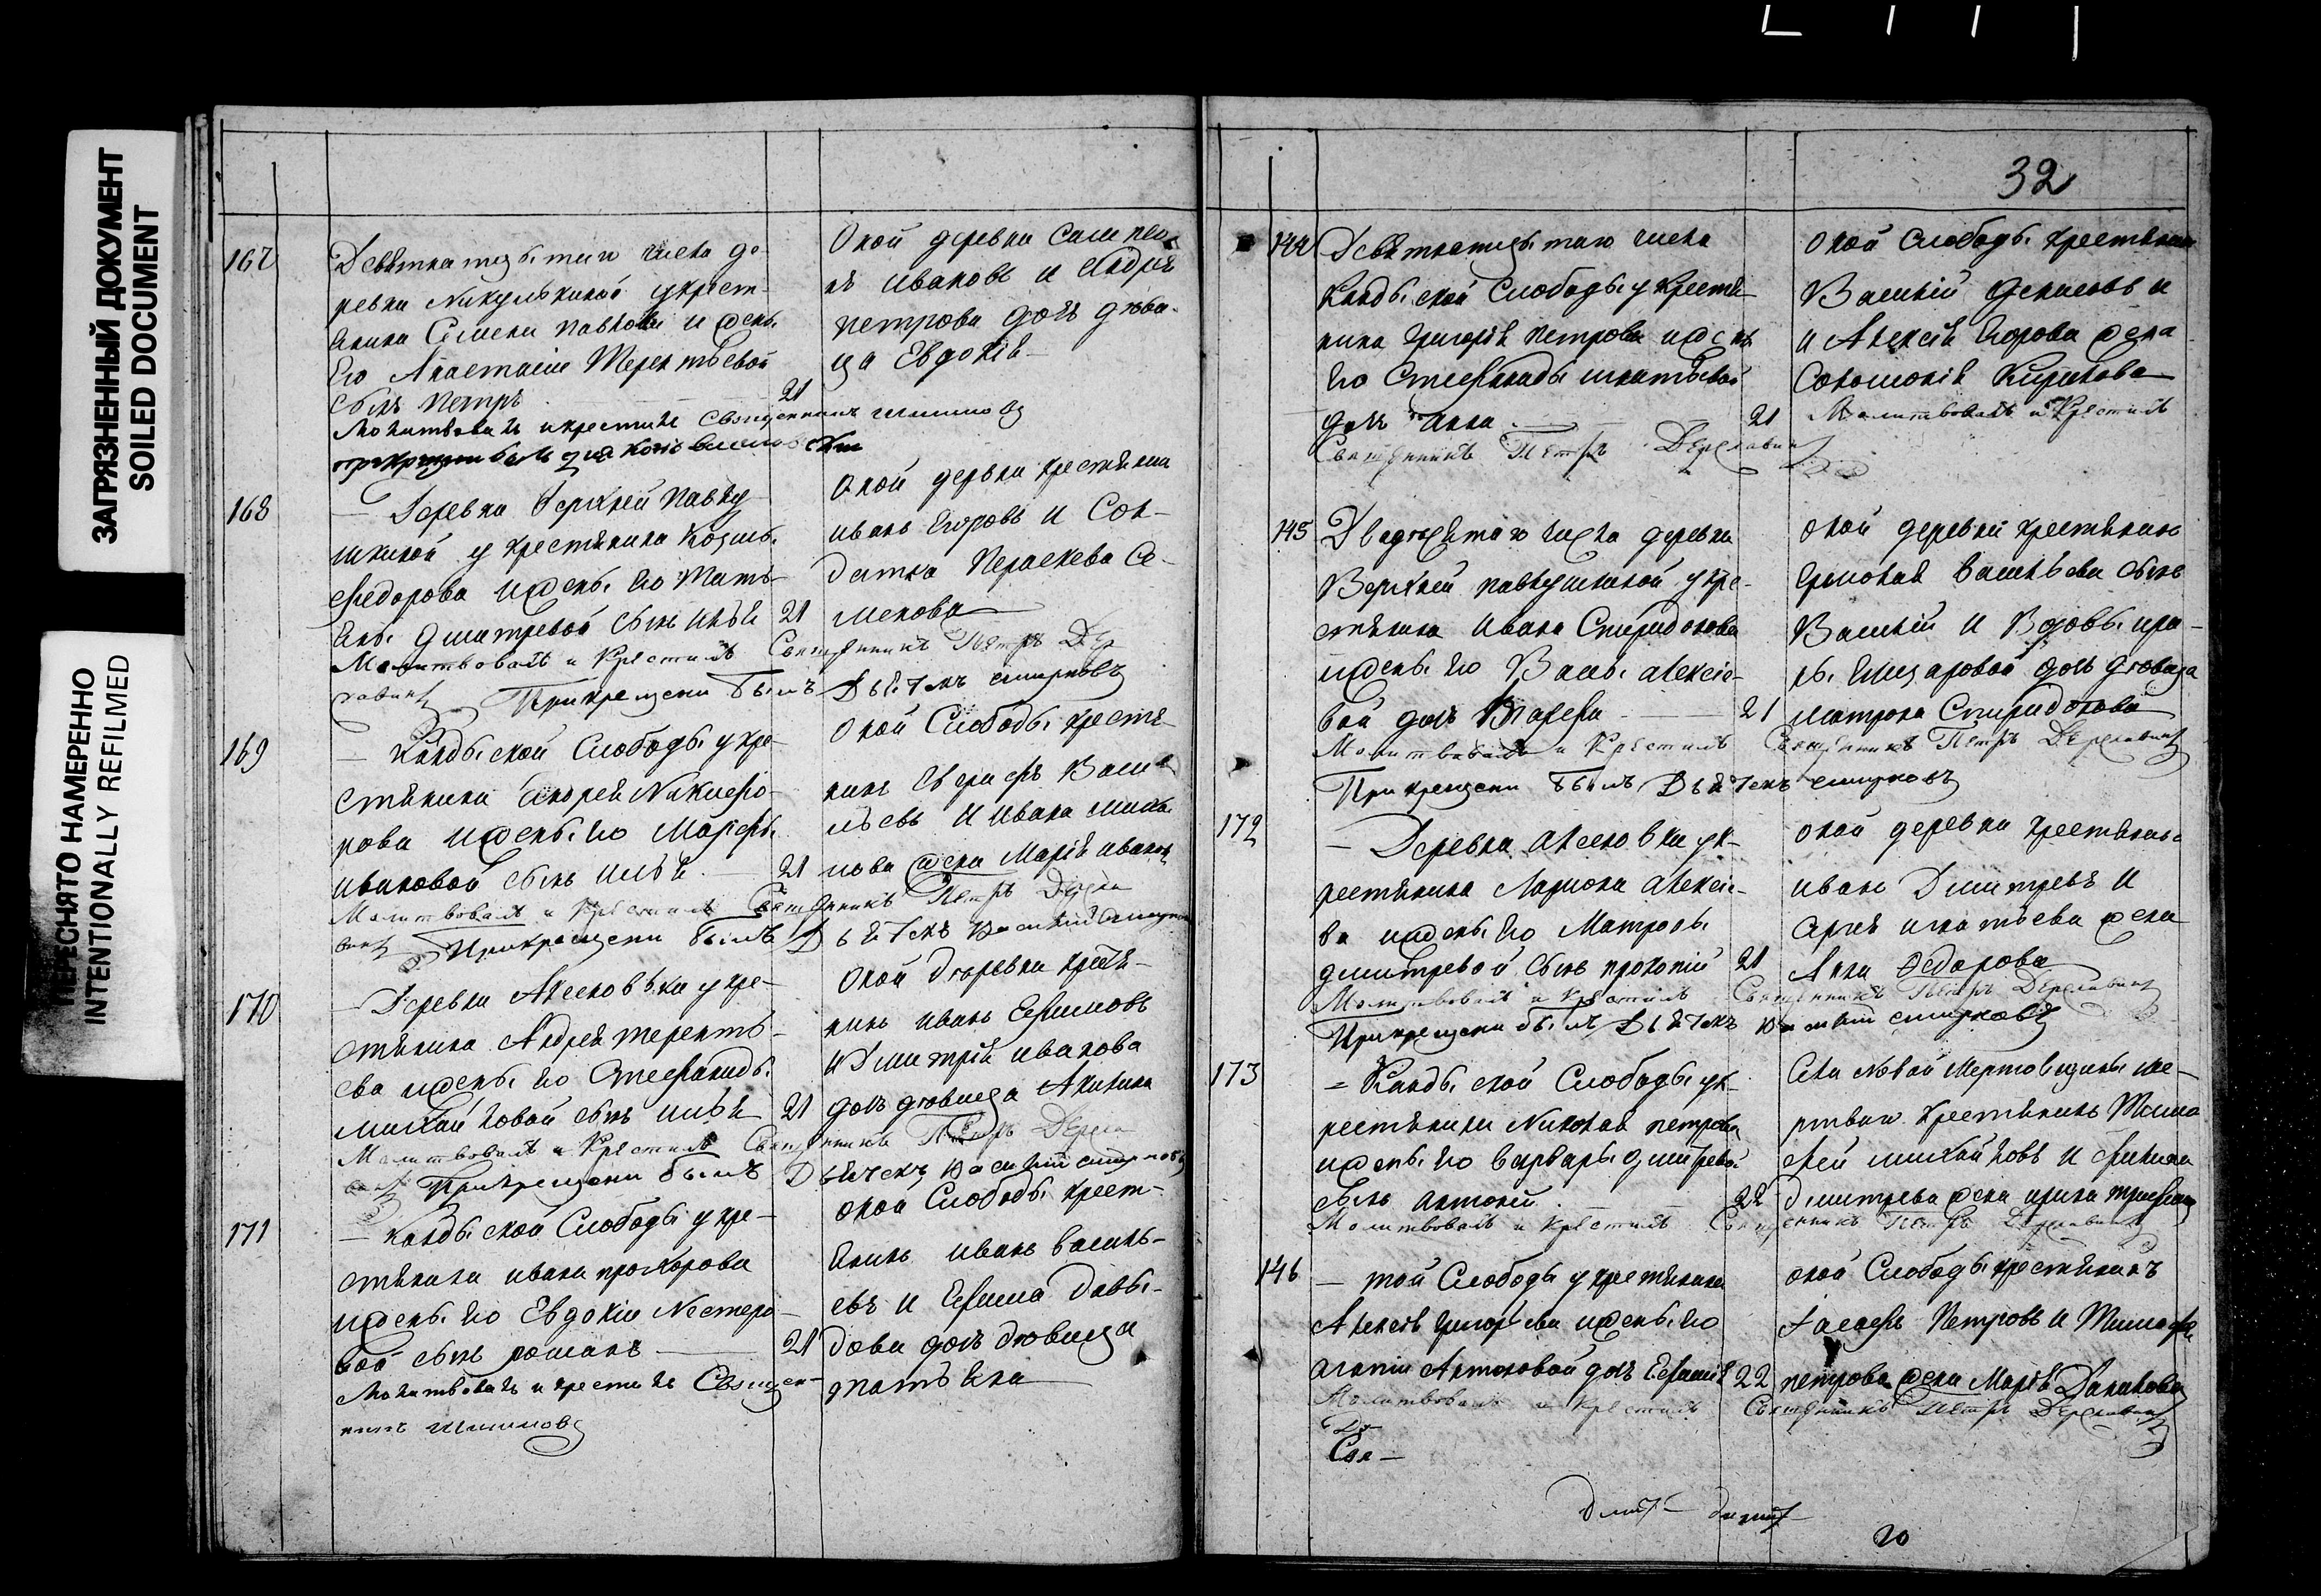 ЗАГРЯЗНЕННЫЙ ДОКУМЕНТ
SOILED DOCUMENT
ПЕРЕСНЯТО НАМЕРЕННО
INTENTIONALLY REFILMED
167
Девятнатцатаго числа де-
ревни Никулкиной укрест-
янина Семена павлова и жены
Его Анастасии Терентьевой
сынъ петръ
21
Оной деревни
иванов и Андрея
петрова дочь дѣви-
ца Евдокия
Молитвовалъ и крестилъ Священникъ
168
— Деревни верхней павлу
шкиной у крестянина Козмы
Федорова и жены его Тать-
яны дмитревой сынъ илья
21
Оной деревни крестянин
иванъ Егоровъ и Сол-
датка Параскева Се-
менова
Молитвовалъ и Крестилъ Священникъ Петръ Дер
жавинъ При крещени былъ Дьячекъ смирновъ
169
— Слободы у кре-
стянина Андрея Никифо-
рова и жены его Марфы
ивановой сынъ илья
21
Оной Слободы крестя-
нинъ Васи
льевъ и ивана
нова жена Марія иванов
Молитвовалъ и Крестилъ Священникъ Петръ Держа
винъ При крещени былъ Дьячекъ Василий Смирнов
170
— Деревни Аксеновки у кре-
стянина Андрея терентъ-
ева и жены его Стефаниды
михайловой сынъ илья
21
Оной деревни крестя-
нинъ иванъ Ефимовъ
и Дмитрія иванова
дочь дѣвица Акилина
Молитвовалъ и Крестилъ Священникъ Петръ Держа
винъ При крещени былъ Дьячекъ Василий смирновъ
171
— Слободы у кре-
стянина ивана прохорова
и жены его Евдокіи Нестеро-
вой сынъ романъ
21
оной Слободы крест-
янинъ иванъ василь-
евъ и Ефима Давы-
дова дочь дѣвица
татьяна
Молитвовалъ и крестилъ Священ-
никъ
32
144
Девятнатцатаго числа
Слободы у крестя
нина Григорія петрова и жены
его Стефаниды игнатьевой
дочь анна
21
оной Слободы крестянин
Василій Денисовъ и
и Алексія Егорова жена
Соломонія Кирилова
Молитвовалъ и Крестилъ
Священникъ Петръ Державинъ
145
Двадцатаго числа деревни
Верхней павлушкиной у кре-
стянина ивана Спиридонова
и жены его алексіе-
вой дочь
21
оной деревни крестянинъ
Ермолая васильева сынъ
Василій и Вдовы
дочь дѣвица
матрона Спиридонова
Молитвовалъ и Крестилъ Священникъ Петръ Державинъ
При крещени былъ Дьячекъ смирновъ
172
— Деревни аксеновки ук-
рестянина Лариона алексіе-
ва и жены его Матроны
дмитревой сынъ прокопій
21
оной деревни крестянинъ
иванъ Дмитревъ и
Сергея игнатьева жена
Анна Федорова
Молитвовалъ и Крестилъ Священникъ Петръ Державинъ
При крещени былъ Дьячекъ Василий смирновъ
173
— Слободы ук-
рестянина Николая петрова
и жены его варвары дмитревой
сынъ антоній
22
Села Новой
крестянинъ Тимо
фей михайловъ и
дмитрева жена ирина
Молитвовалъ и Крестилъ Священникъ Петръ Державинъ
146
— той Слободы у крестянина
Алексія Григорьева и жены его
агапіи Антоновой дочь Евфимія
22
оной Слободы крестянинъ
Петровъ и Тимофея
петрова жена Марія Данилова
Молитвовалъ и Крестилъ Священникъ Петръ Державинъ
20